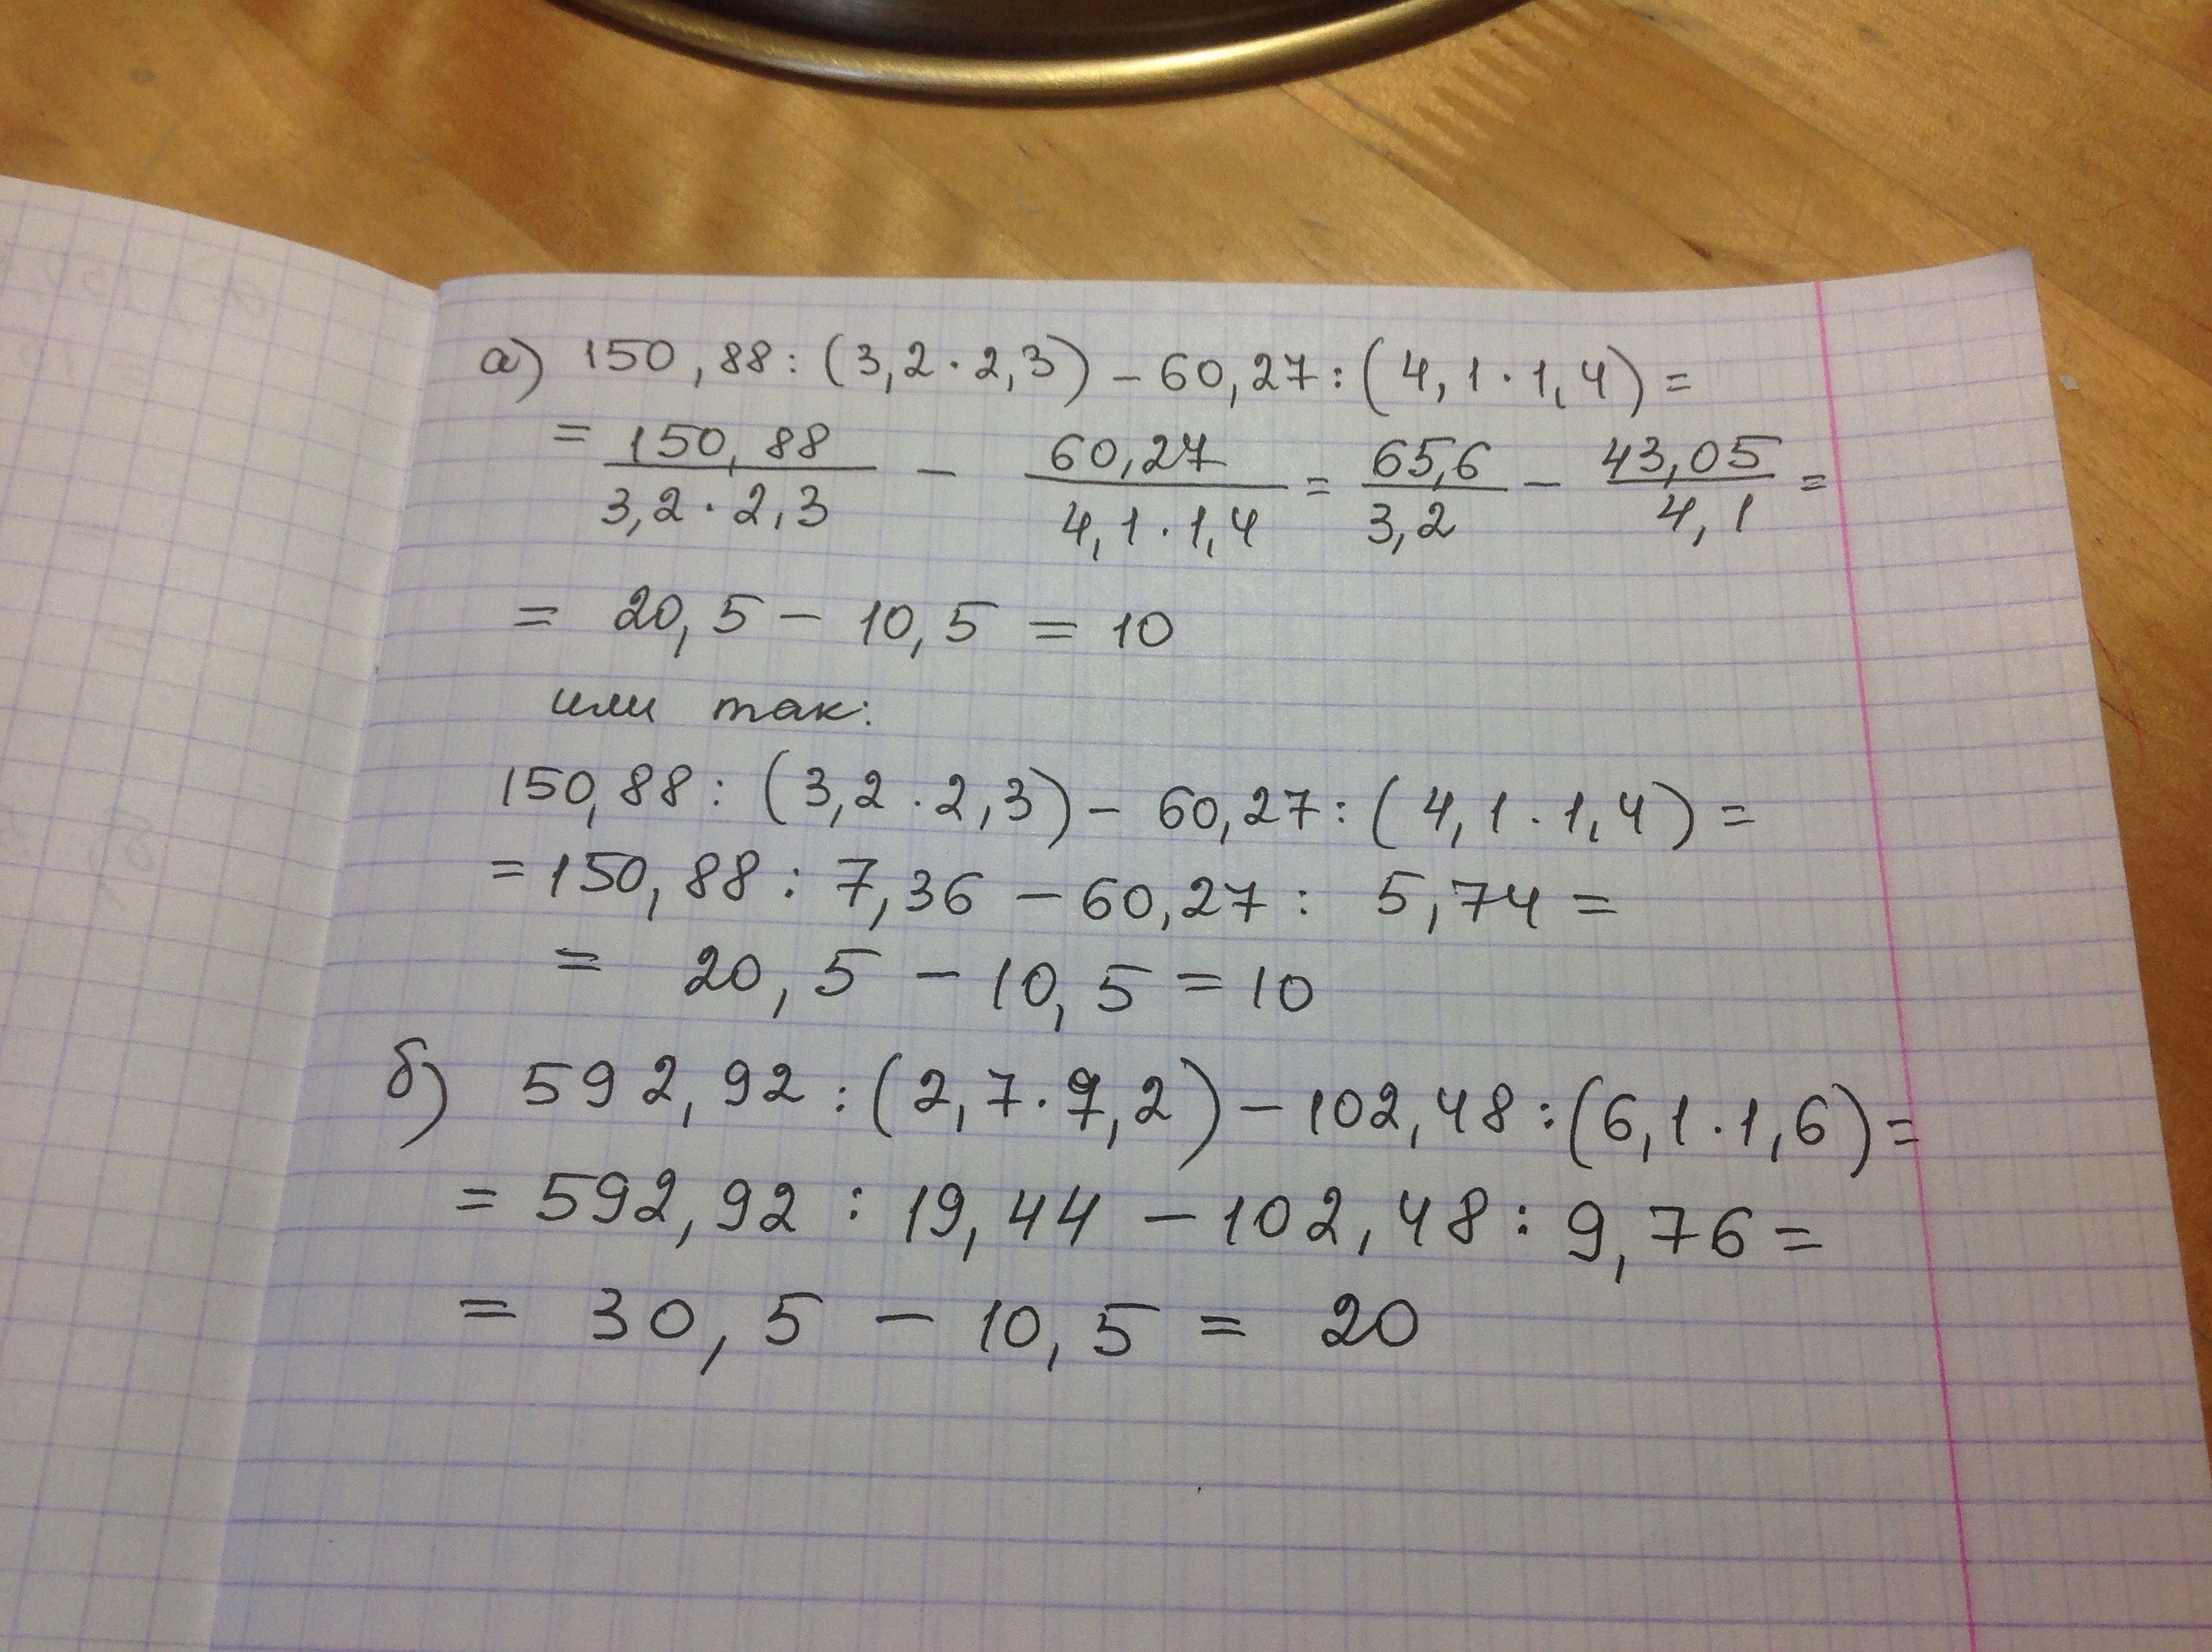 а) 150,88 : (3,2 · 2,3) – 60,27 : (4,1 · 1,4) =
= 150,88 / (3,2 · 2,3) – 60,27 / (4,1 · 1,4) = 65,6 / 3,2 – 43,05 / 4,1 =
= 20,5 – 10,5 = 10
или так:
150,88 : (3,2 · 2,3) – 60,27 : (4,1 · 1,4) =
= 150,88 : 7,36 – 60,27 : 5,74 =
= 20,5 – 10,5 = 10
б) 592,92 : (2,7 · 7,2) – 102,48 : (6,1 · 1,6) =
= 592,92 : 19,44 – 102,48 : 9,76 =
= 30,5 – 10,5 = 20